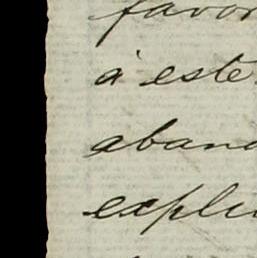 favor
á este
aban
expli